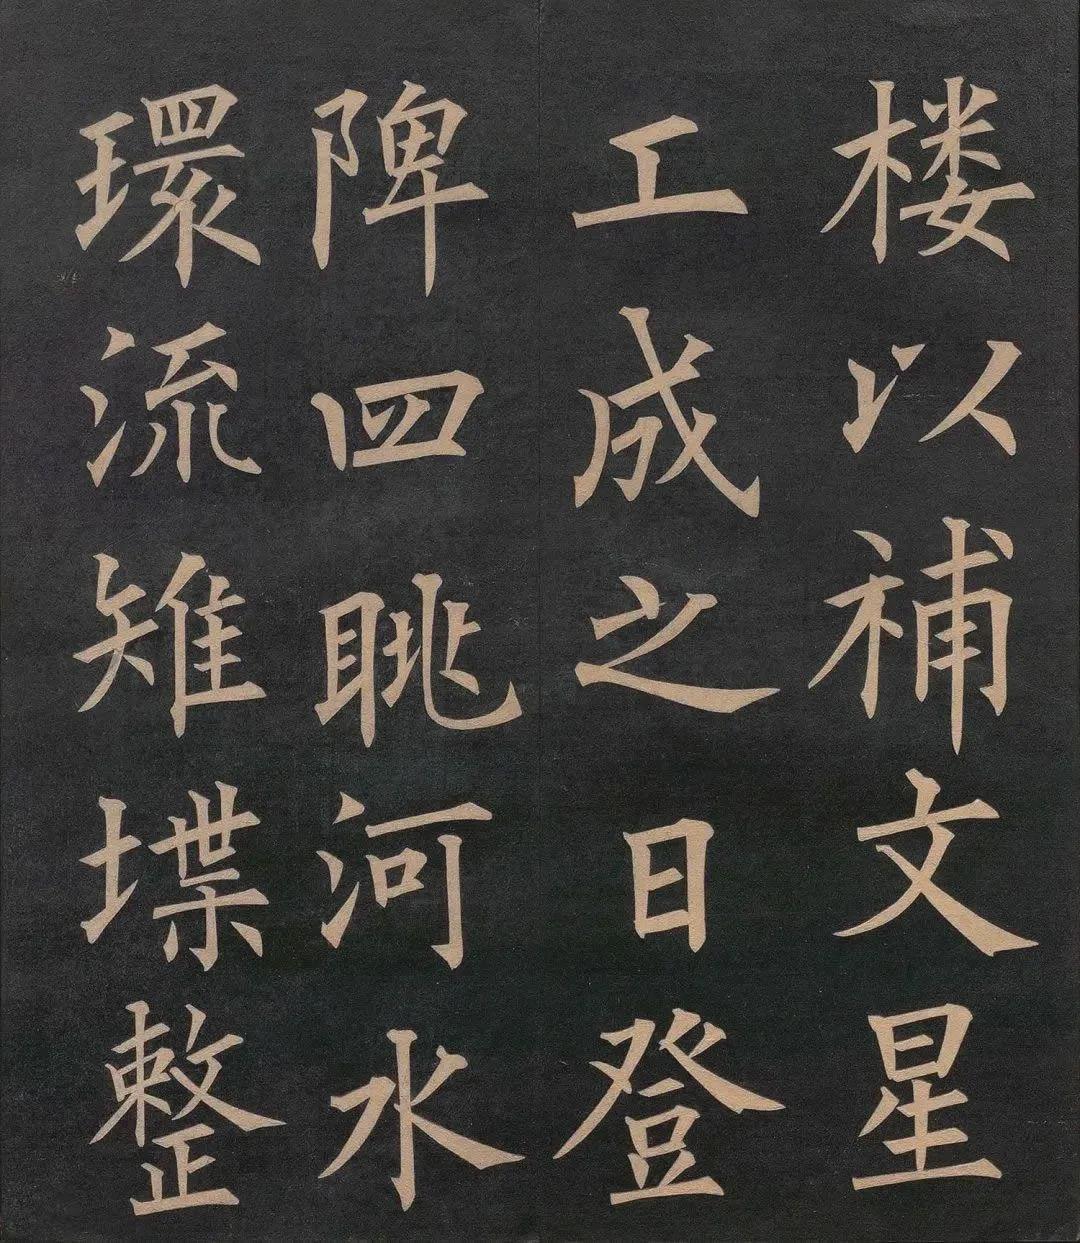 楼以補文星
工成之日登
陴四眺河水
環流雉堞整